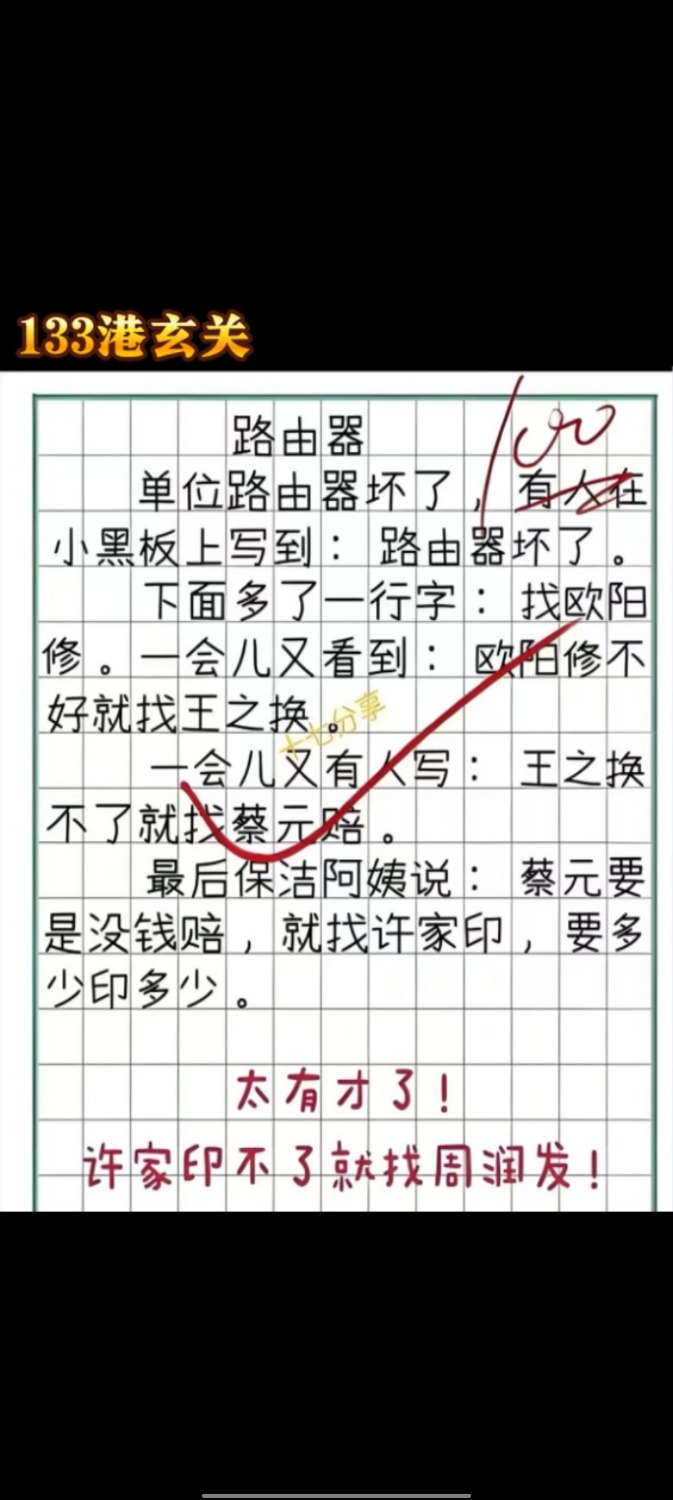 133港玄关
100
路由器
单位路由器坏了，有人在
小黑板上写到：路由器坏了。
下面多了一行字：找欧阳
修。一会儿又看到：欧阳修不
好就找王之换。
十七分享
一会儿又有人写：王之换
不了就找蔡元赔。
最后保洁阿姨说：蔡元要
是没钱赔，就找许家印，要多
少印多少。
太有才了！
许家印不了就找周润发！